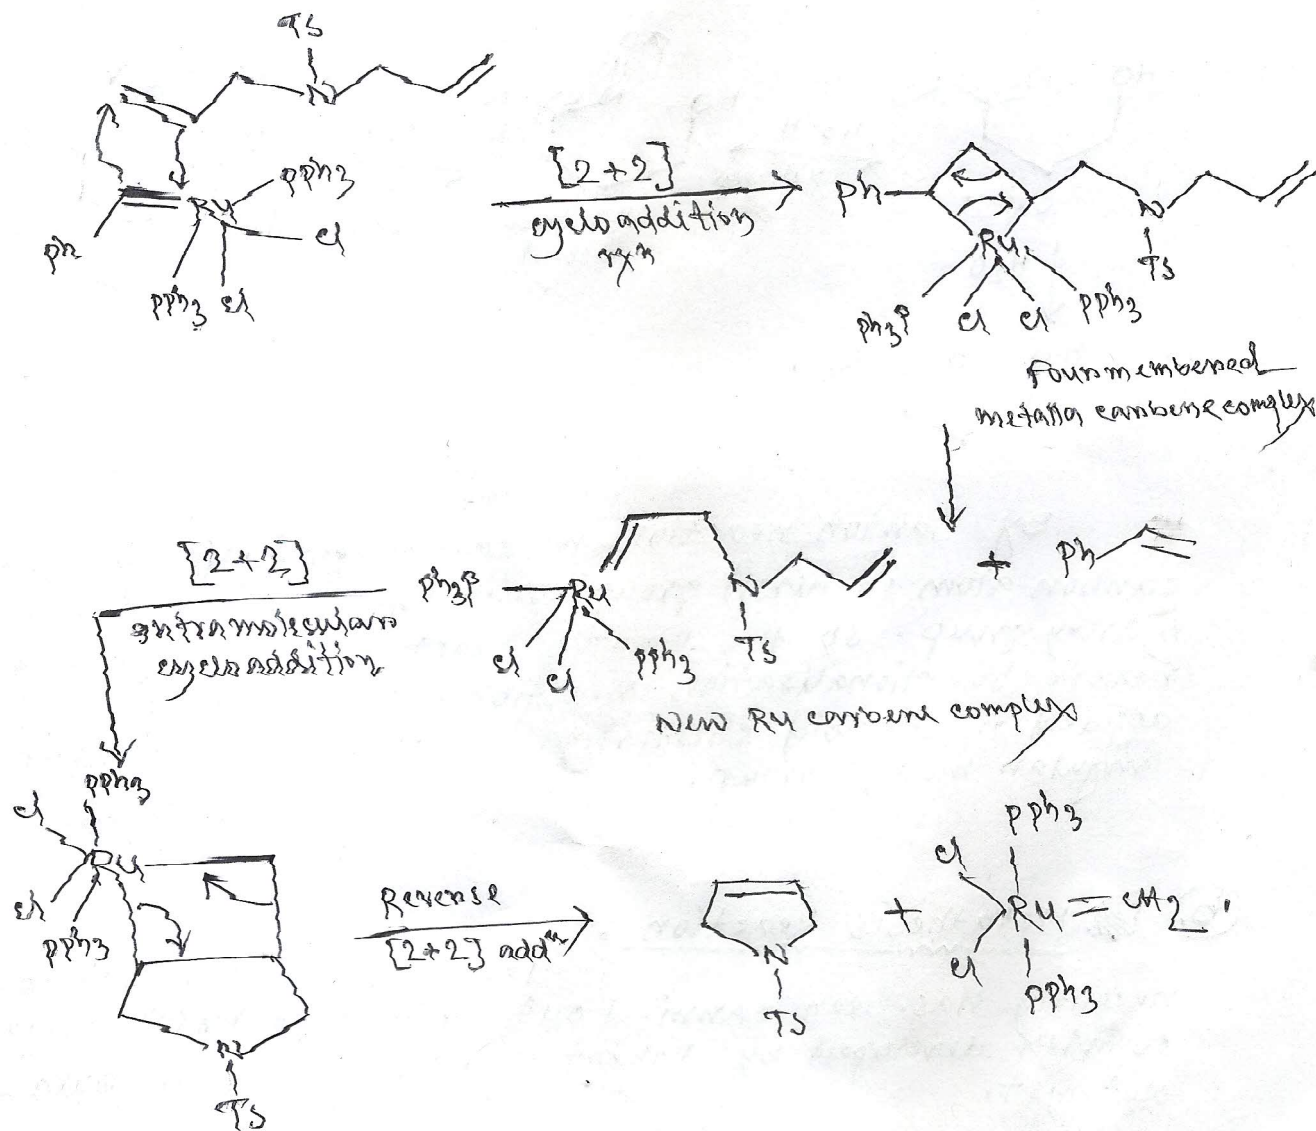 TS
N
PPh3
Ru
Cl
Ph
PPh3 Cl
[2+2]
cycloaddition
rxn
Ph
N
TS
Ru
Ph3P Cl Cl PPh3
Four membered
metalla carbene complex
[2+2]
Intramolecular
cycloaddition
Ph3P Ru
Cl
Cl
PPh3
N
TS
+ Ph
New Ru carbene complex
PPh3
Cl
Ru
Cl
PPh3
N
TS
Reverse
[2+2] addn
N
TS
+
PPh3
Cl
Ru=CH2.
Cl
PPh3